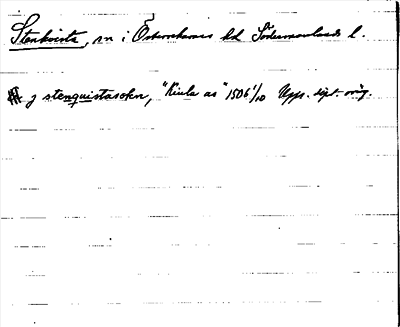 Stenkvista, sn i Österrekarnes hd Södermanlands l.
j stenquistasokn, "Kiula as" 1506 1/10 Upps. dipl. orig.